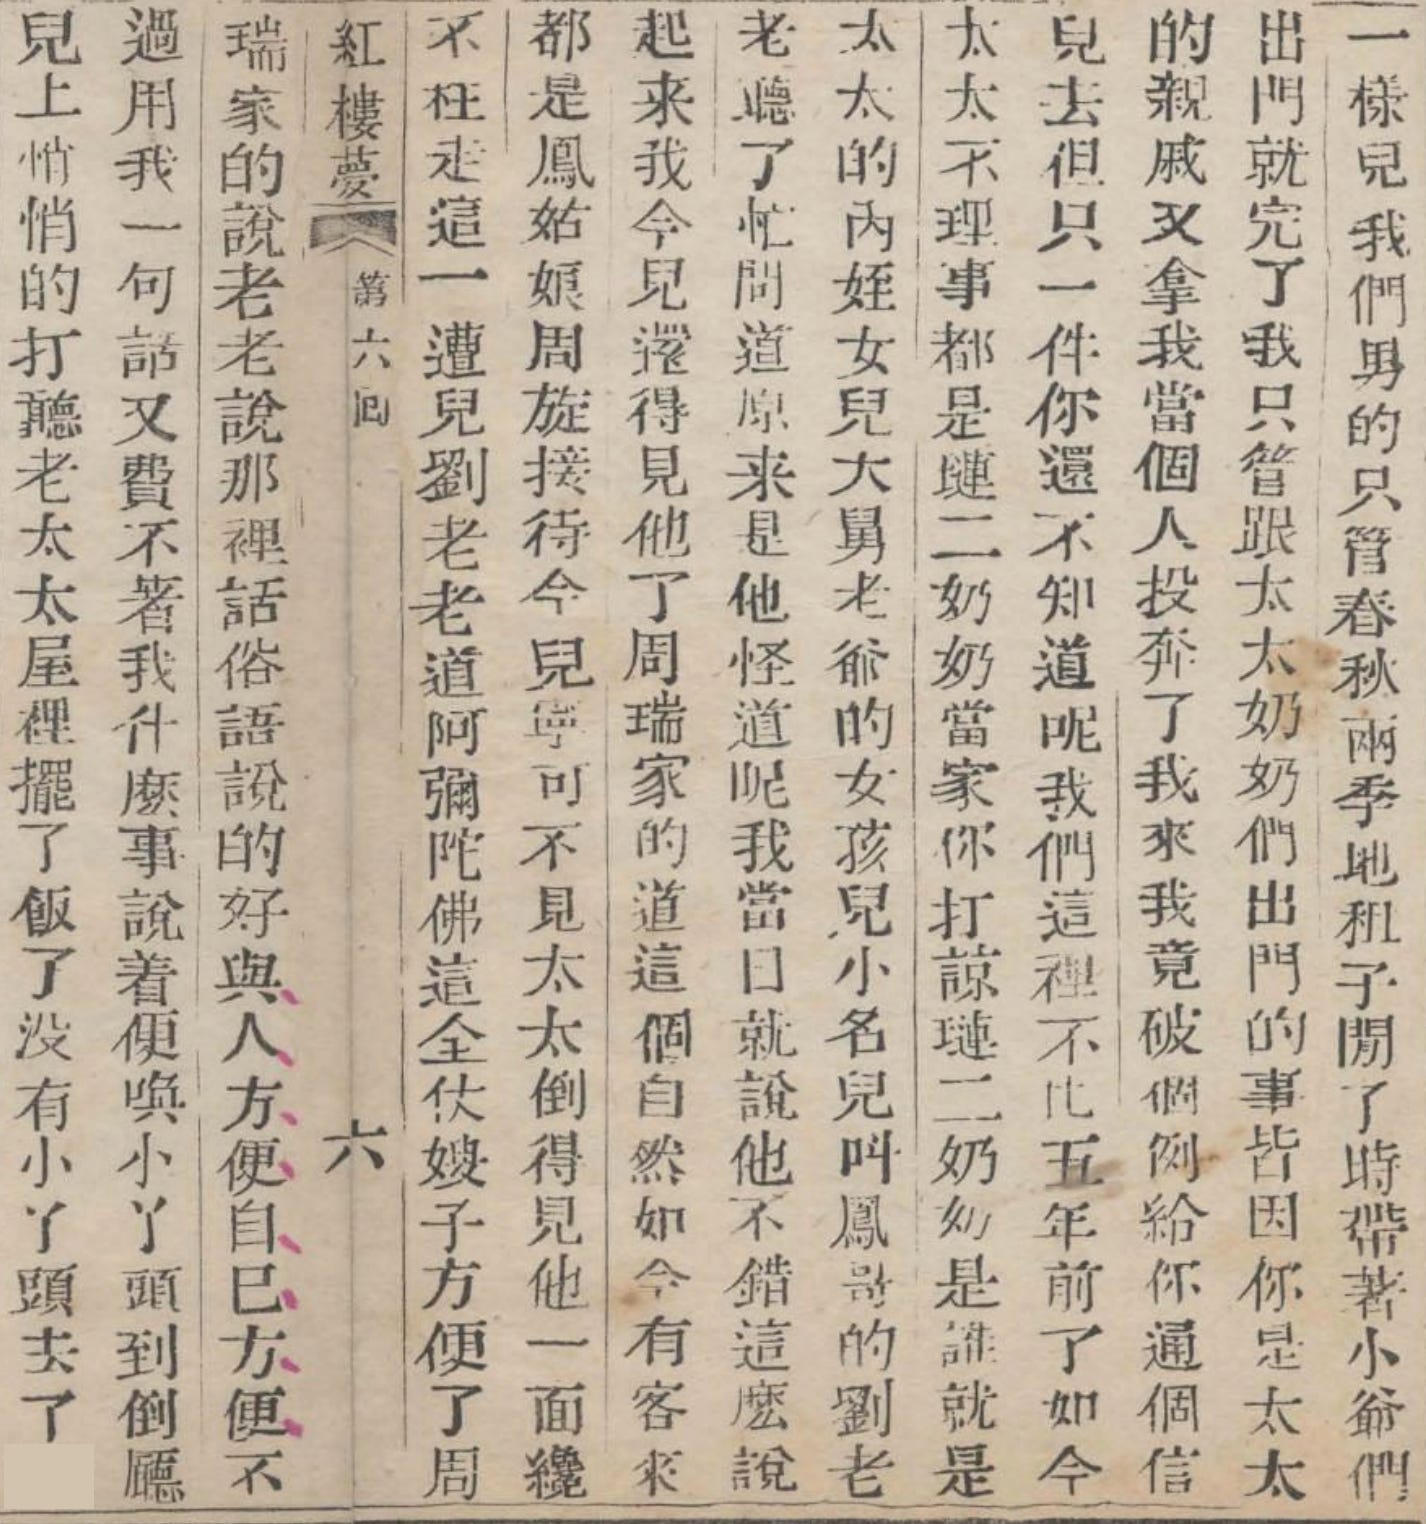 一樣兒我們男的只管春秋兩季地租子閒了時帶著小爺們
出門就完了我只管跟太太奶奶們出門的事皆因你是太太
的親戚又拿我當個人投奔了我來我竟破個例給你通個信
兒去但只一件你還不知道呢我們這裡不比五年前了如今
太太不理事都是璉二奶奶當家你打諒璉二奶奶是誰就是
太太的內姪女兒大舅老爺的女孩兒小名兒叫鳳哥的劉老
老聽了忙問道原来是他怪道呢我當日就說他不錯這麼說
起来我今兒還得見他了周瑞家的道這個自然如今有客來
都是鳳姑娘周旋接待今兒寧可不見太太倒得見他一面纔
不枉走這一遭兒劉老老道阿彌陀佛這全仗嫂子方便了周
紅樓夢 第六回 六
瑞家的說老老說那裡話俗語說的好與人方便自已方便不
過用我一句話又費不著我什麽事說着便喚小丫頭到倒廳
兒上悄悄的打聽老太太屋裡擺了飯了没有小丫頭去了